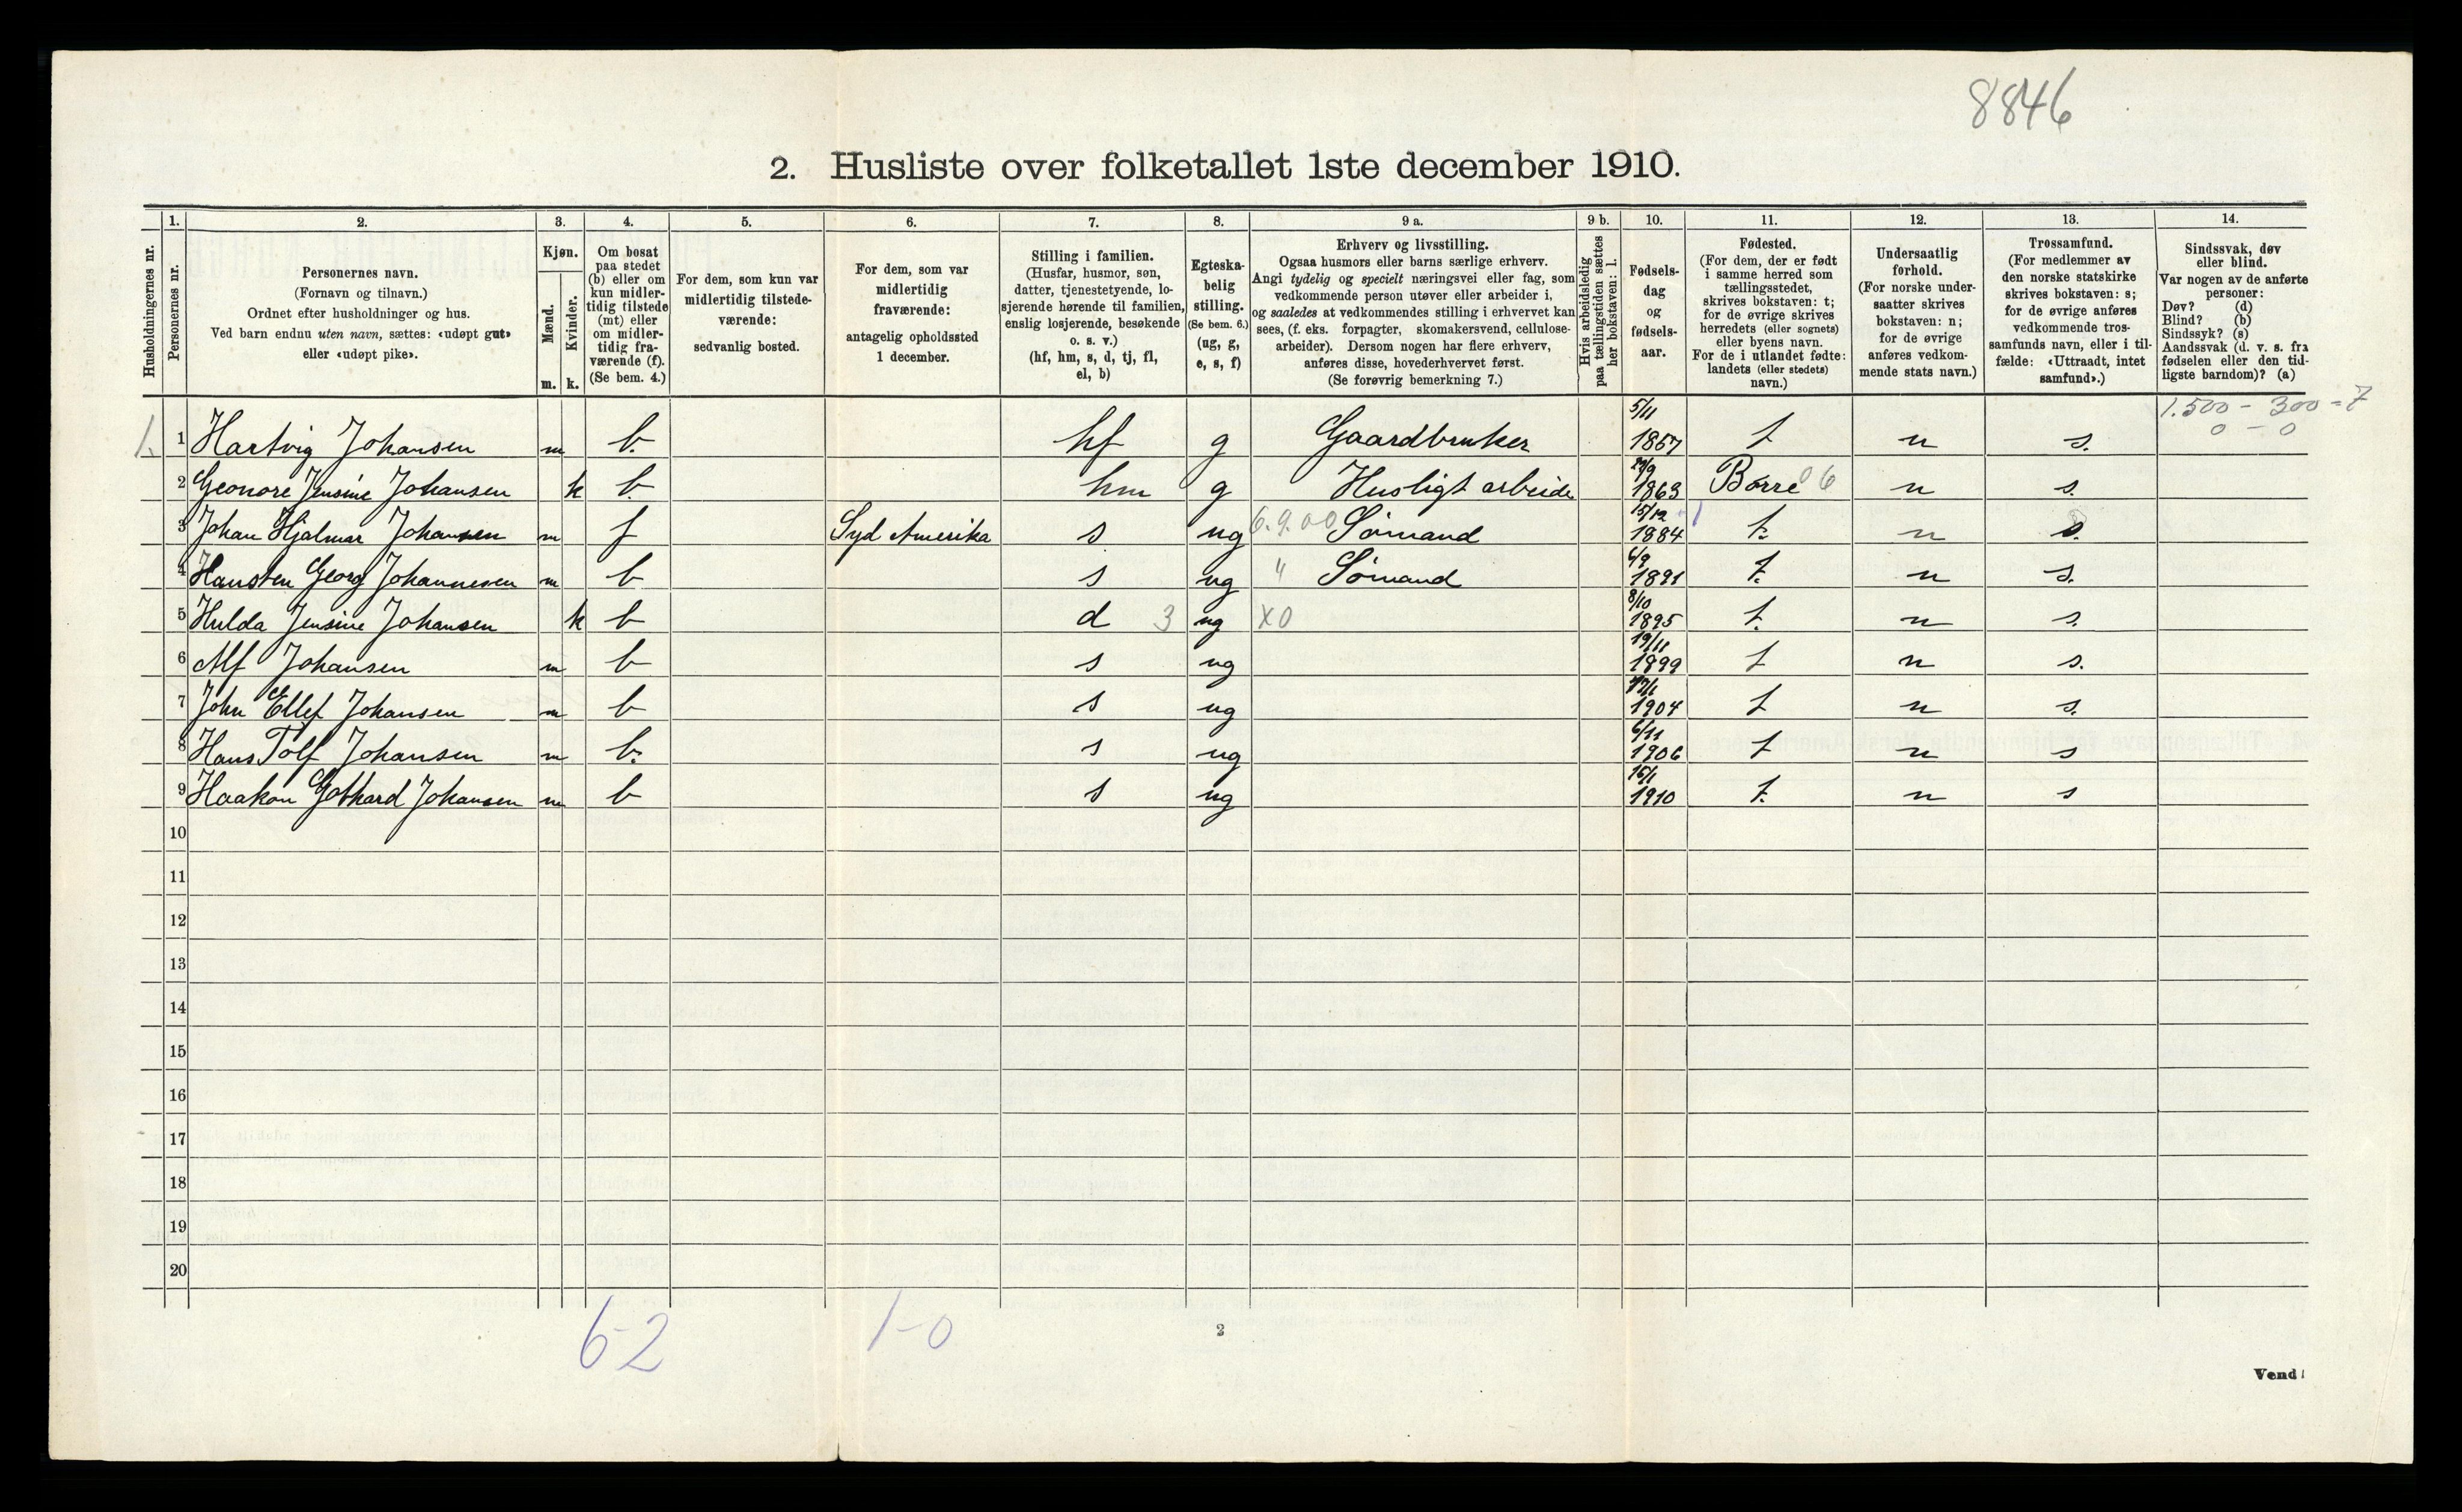 8846
2. Husliste over folketallet 1ste december 1910.
Husholdningernes nr.
1.
Personernes nr.
2.
Personernes navn.
(Fornavn og tilnavn.)
Ordnet efter husholdninger og hus.
Ved barn endnu uten navn, sættes: «udøpt gut»
eller «udøpt pike».
3.
Kjøn.
Mænd.
Kvinder.
m. k.
4.
Om bosat
paa stedet
(b) eller om
kun midler-
tidig tilstede
(mt) eller
om midler-
tidig fra-
værende (f).
(Se bem. 4.)
5.
For dem, som kun var
midlertidig tilstede-
værende:
sedvanlig bosted.
6.
For dem, som var
midlertidig
fraværende:
antagelig opholdssted
1 december.
7.
Stilling i familien.
(Husfar, husmor, søn,
datter, tjenestetyende, lo-
sjerende hørende til familien,
enslig losjerende, besøkende
o. s. v.)
(hf, hm, s, d, tj, fl,
el, b)
8.
Egteska-
belig
stilling.
(Se bem. 6.)
(ug, g,
e, s, f)
9 a.
Erhverv og livsstilling.
Ogsaa husmors eller barns særlige erhverv.
Angi tydelig og specielt næringsvei eller fag, som
vedkommende person utøver eller arbeider i,
og saaledes at vedkommendes stilling i erhvervet kan
sees, (f. eks. forpagter, skomakersvend, cellulose-
arbeider). Dersom nogen har flere erhverv,
anføres disse, hovederhvervet først.
(Se forøvrig bemerkning 7.)
9 b.
Hvis arbeidsledig
paa tællingstiden sættes
her bokstaven: l.
10.
Fødsels-
dag
og
fødsels-
aar.
11.
Fødested.
(For dem, der er født
i samme herred som
tællingsstedet,
skrives bokstaven: t;
for de øvrige skrives
herredets (eller sognets)
eller byens navn.
For de i utlandet fødte:
landets (eller stedets)
navn.)
12.
Undersaatlig
forhold.
(For norske under-
saatter skrives
bokstaven: n;
for de øvrige
anføres vedkom-
mende stats navn.)
13.
Trossamfund.
(For medlemmer av
den norske statskirke
skrives bokstaven: s;
for de øvrige anføres
vedkommende tros-
samfunds navn, eller i til-
fælde: «Uttraadt, intet
samfund».)
14.
Sindssvak, døv
eller blind.
Var nogen av de anførte
personer:
Døv? (d)
Blind? (b)
Sindssyk? (s)
Aandssvak (d. v. s. fra
fødselen eller den tid-
ligste barndom)? (a)
1.500 - 300 = 7
0 - 0
1. 1 Hartvig Johansen m b. hf g Gaardbruker 5/11 1867 t n s.
2 Geonore Jensine Johansen k b. hm g Husligt arbeide 1863 Borre 06 n s.
3 Johan Hjalmar Johansen m f Syd Amerika s ug 6.9.00 Sömand 15/12 1884 t. n s.
4 Hansten Georg Johannesen m b s ug " Sömand 6/9 1891 t. n s.
5 Hulda Jensine Johansen k b d 3 ug X0 8/10 1895 t. n s.
6 Alf Johansen m b s ug 19/11 1899 t n s.
7 John Ellef Johansen m b s ug 1904 t n s.
8 Hans Tolf Johansen m b. s ug 6/11 1906 t n s
9 Haakon Gothard Johansen m b s ug 15/1 1910 t. n s
10
11
12
13
14
15
16
17
18
19
20
6-2
1-0
2
Vend!